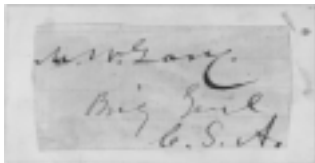 M. W. Gary
Brig Genl
C. S. A.